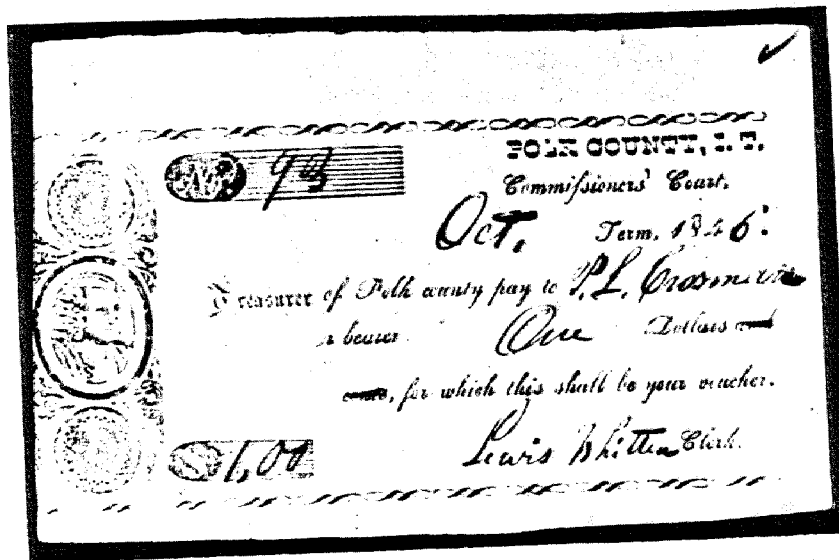 POLK COUNTY, I. T.
No 93
Commissioners' Court.
Oct. Term, 1846:
Treasurer of Polk county pay to P. L. Crosman
r bearer One Dollars and
cents, for which this shall be your voucher.
$ 1,00 Lewis Whitten Clerk.